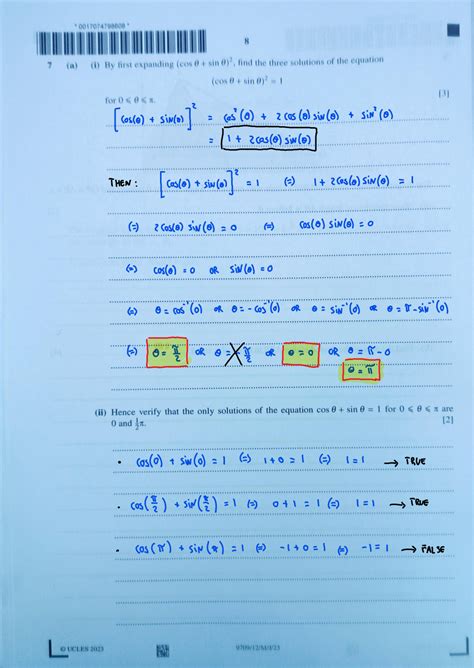 * 0017074798608 *
8
7 (a) (i) By first expanding (cos θ + sin θ)², find the three solutions of the equation
(cos θ + sin θ)² = 1
for 0 ⩽ θ ⩽ π. [3]
[cos(θ) + sin(θ)]² = cos²(θ) + 2cos(θ)sin(θ) + sin²(θ)
= 1 + 2cos(θ)sin(θ)
THEN: [cos(θ) + sin(θ)]² = 1 (=) 1 + 2cos(θ)sin(θ) = 1
(=) 2cos(θ)sin(θ) = 0 (=) cos(θ)sin(θ) = 0
(=) cos(θ) = 0 OR sin(θ) = 0
(=) θ = cos⁻¹(0) OR θ = -cos⁻¹(0) OR θ = sin⁻¹(0) OR θ = π - sin⁻¹(0)
(=) θ = π/2 OR θ = -π/2 OR θ = 0 OR θ = π - 0
θ = π
(ii) Hence verify that the only solutions of the equation cos θ + sin θ = 1 for 0 ⩽ θ ⩽ π are
0 and ½π. [2]
• cos(0) + sin(0) = 1 (=) 1 + 0 = 1 (=) 1 = 1 → TRUE
• cos(π/2) + sin(π/2) = 1 (=) 0 + 1 = 1 (=) 1 = 1 → TRUE
• cos(π) + sin(π) = 1 (=) -1 + 0 = 1 (=) -1 = 1 → FALSE
© UCLES 2023
9709/12/M/J/23